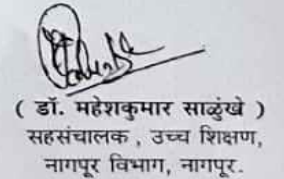 ( डॉ. महेशकुमार साळुंखे )
सहसंचालक , उच्च शिक्षण,
नागपूर विभाग, नागपूर.